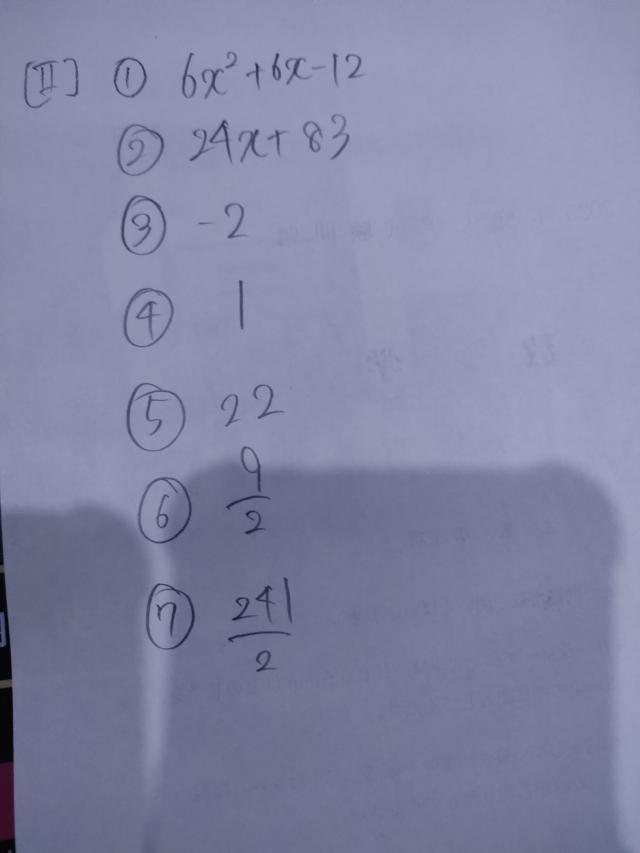 [II] ① 6x²+6x-12
② 24x+83
③ -2
④ 1
⑤ 22
⑥ 9/2
⑦ 241/2